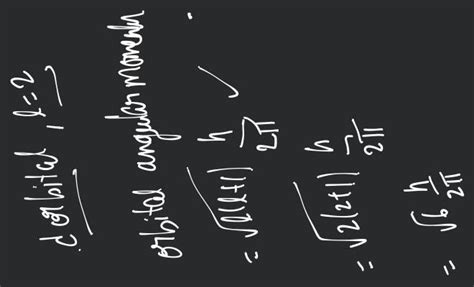 d orbital, l=2
orbital angular momentum
= √l(l+1) h/2π
= √2(2+1) h/2π
= √6 h/2π